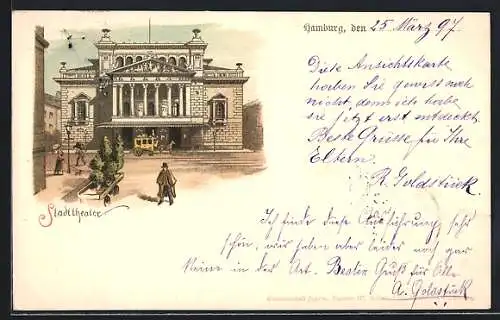 Hamburg, den 25 März 97
Diese Ansichtskarte
haben Sie gewiss noch
nicht, denn ich habe
sie jetzt erst entdeckt.
Beste Grüsse für Ihre
Eltern.
R. Goldstück.
Stadttheater
Ich finde diese Ausführung sehr
schön, wir haben aber leider noch gar
keine in der Art. Besten Gruß für Alle
A. Goldstück